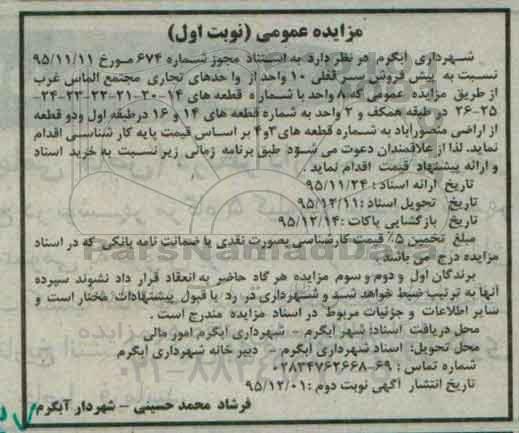 مزایده عمومی (نوبت اول)
شهرداری آبگرم در نظر دارد به استناد مجوز شماره ۶۷۴ مورخ ۹۵/۱۱/۱۱
نسبت به پیش فروش سر قفلی ۱۰ واحد از واحدهای تجاری مجتمع الماس غرب
از طریق مزایده عمومی که ۸ واحد با شماره قطعه های ۱۴-۲۰-۲۱-۲۲-۲۳-۲۴-
۲۵-۲۶ در طبقه همکف و ۲ واحد به شماره قطعه های ۱۴ و ۱۶ درطبقه اول ودو قطعه
از اراضی منصورآباد به شماره قطعه های ۳و۴ بر اساس قیمت پایه کار شناسی اقدام
نماید. لذا از علاقمندان دعوت می شود طبق برنامه زمانی زیر نسبت به خرید اسناد
و ارائه پیشنهاد قیمت اقدام نماید .
تاریخ ارائه اسناد : ۹۵/۱۱/۲۴
تاریخ تحویل اسناد :۹۵/۱۲/۱۱
تاریخ بازگشایی پاکات :۹۵/۱۲/۱۴
مبلغ تخمین ۵٪ قیمت کارشناسی بصورت نقدی یا ضمانت نامه بانکی که در اسناد
مزایده درج می باشد .
برندگان اول و دوم و سوم مزایده هر گاه حاضر به انعقاد قرار داد نشوند سپرده
آنها به ترتیب ضبط خواهد شد و شهرداری در رد یا قبول پیشنهادات مختار است و
سایر اطلاعات و جزئیات مربوط در اسناد مزایده مندرج است .
محل دریافت اسناد: شهر آبگرم - شهرداری آبگرم امور مالی
محل تحویل: اسناد شهرداری آبگرم - دبیر خانه شهرداری آبگرم
شماره تماس : ۶۹-۰۲۸۳۴۷۶۲۶۶۸
تاریخ انتشار آگهی نوبت دوم :۹۵/۱۲/۰۱
فرشاد محمد حسینی - شهردار آبگرم
ParsNamadData